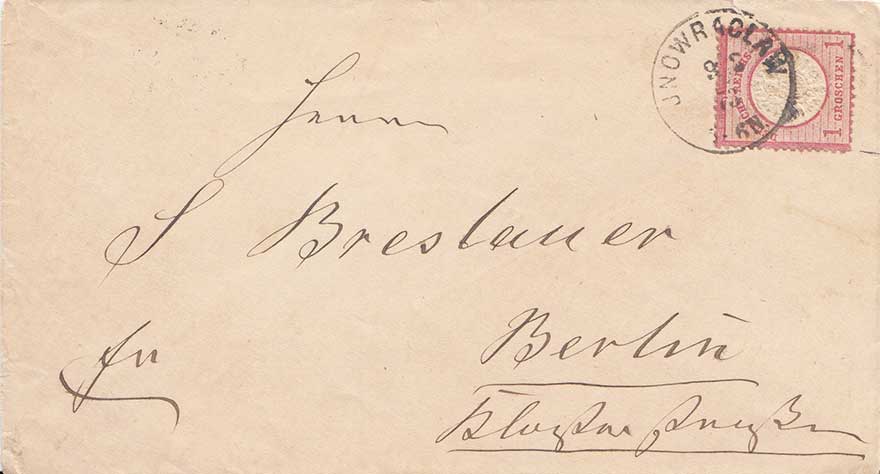 JNOWRACLAW
9 2
73
6N.
1 GROSCHEN 1
Herrn
S Breslauer
Berlin
Kloster Straße